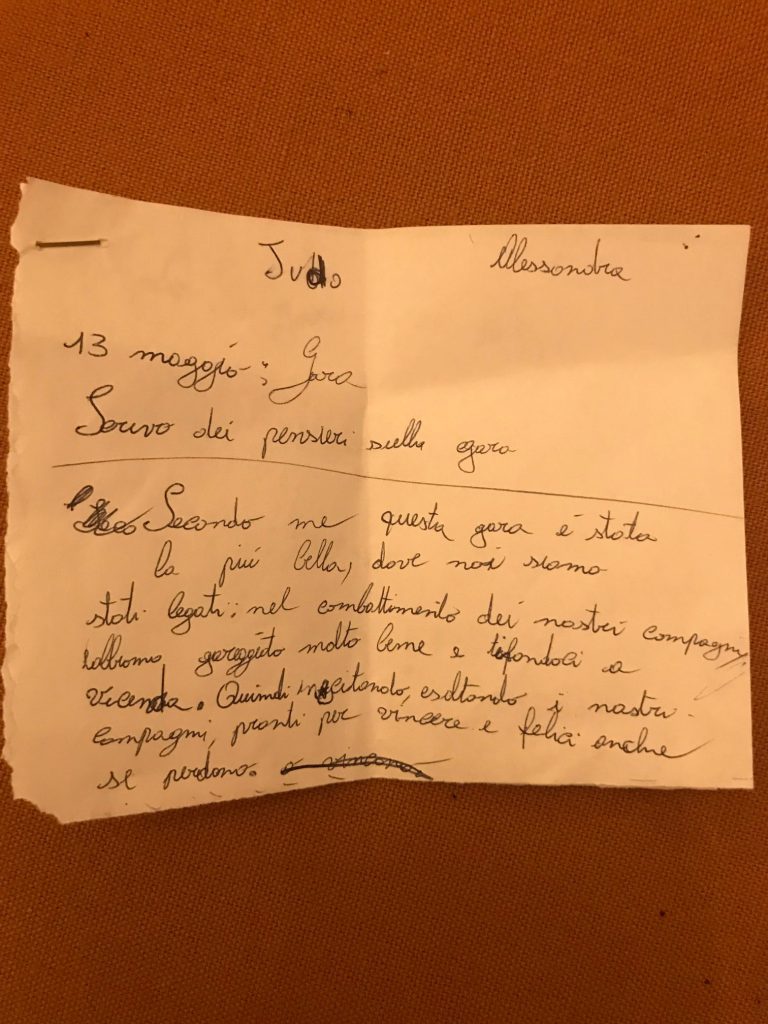 Judo Alessandra
13 maggio: Gara
Scrivo dei pensieri sulla gara
Secondo me questa gara é stata
la piú bella, dove noi siamo
stati legati: nel combattimento dei nostri compagni,
abbiamo gareggiato molto bene e tifandoci a
vicenda. Quindi incitando, esaltando i nostri
compagni, pronti per vincere e felici anche
se perdono.